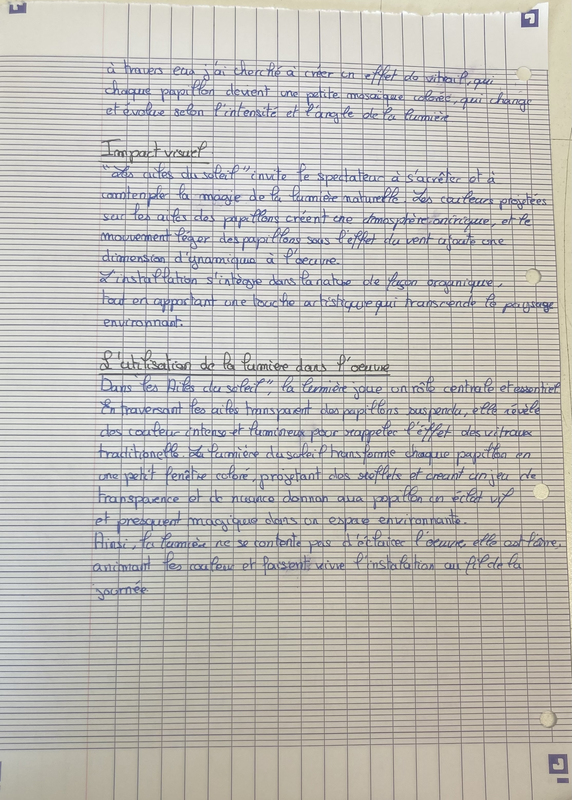 à travers eux j'ai cherché à créer un effet de vitrail, qui
chaque papillon devient une petite mosaïque colorée, qui change
et évolue selon l'intensité et l'angle de la lumière
Impact visuel
"Les ailes du soleil" invite le spectateur à s'arrêter et à
contempler la magie de la lumière naturelle. Les couleurs projetées
sur les ailes des papillons créent une atmosphère onirique, et le
mouvement léger des papillons sous l'effet du vent ajoute une
dimension dynamique à l'oeuvre.
L'installation s'intègre dans la nature de façon organique,
tout en apportant une touche artistique qui transcende le paysage
environnant.
L'utilisation de la lumière dans l'oeuvre
Dans les Ailes du soleil", la lumière joue un rôle centrale et essentiel
En traversant les ailes transparent des papillons suspendu, elle révèle
des couleur intense et lumineux pour rappeler l'effet des vitraux
traditionelle. La lumière du soleil transforme chaque papillon en
une petit fenêtre coloré, projetant des reflets et créant un jeu de
transparence et de nuance donnan aux papillon un éclat vif
et presquent magique dans un espace environnante.
Ainsi, la lumière ne se contente pas d'éclairer l'oeuvre, elle est l'âme,
animant les couleur et faisent vivre l'instalation au fil de la
journée.